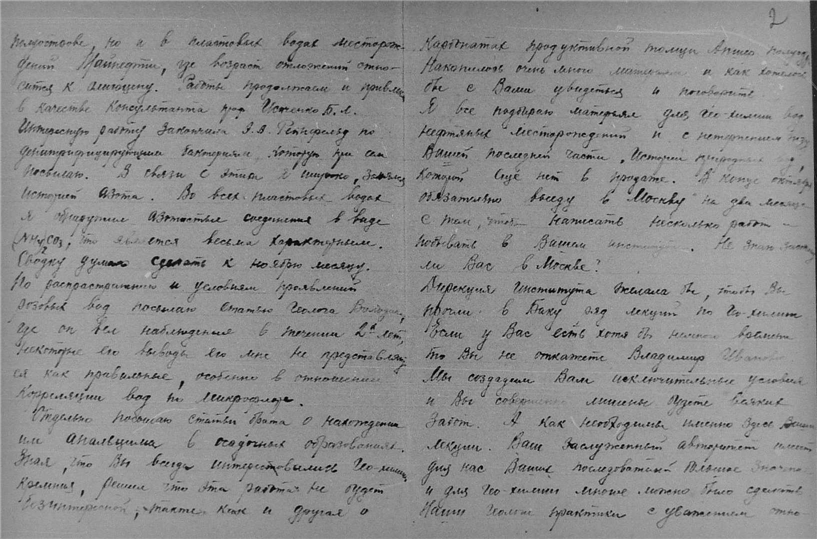 полуострове, но и в пластовых водах месторож-
дений Майнефти, где возраст отложений отно-
сится к олигоцену. Работы продолжаем и привлек
в качестве консультанта проф. Исаченко Б. Л.
Интересную работу закончила Э. В. Рейнфельд по
денитрифицирующим бактериям, которую при сем
посылаю. В связи с этим я широко занялся
историей азота. Во всех пластовых водах
я обнаружил азотистые соединения в виде
что является весьма характерным.
Сводку думаю сделать к ноябрю месяцу.
По распространению и условиям проявлений
розовых вод посылаю статью геолога
где он вел наблюдения в течении 2х лет,
некоторые его выводы мне не представляют-
ся как правильные, особенно в отношении
корреляции вод по микрофлоре.
Отдельно посылаю статьи брата о нахождении
им анальцима в осадочных образованиях.
Зная, что Вы всегда интересовались геохимией
кремния, решил что эта работа не будет
безинтересной, также как и другая о
2
Карбонатах продуктивной толщи Апшер. полуос.
Накопилось очень много материала и как хотелось
бы с Вами увидеться и поговорить.
Я все подбираю материал для геохимии вод
нефтяных месторождений и с нетерпением жду
Вашей последней части „Истории природных вод",
которой еще нет в продаже. В конце октября
обязательно выеду в Москву на два месяца
с тем, чтоб написать несколько работ —
побывать в Вашем институте. Не знаю
ли Вас в Москве?
Дирекция Института желала бы, чтобы Вы
прочли в Баку ряд лекций по геохимии
Если у Вас есть хотя бы немного времени
то Вы не откажете Владимир Иванович
Мы создадим Вам исключительные условия
и Вы совершенно лишены будете всяких
забот. А как необходимы именно здесь Ваши
лекции. Ваш заслуженный авторитет имеет
для нас Ваших последователей большое значение
и для геохимии многое можно было сделать
Наши геологи практики с уважением отно-